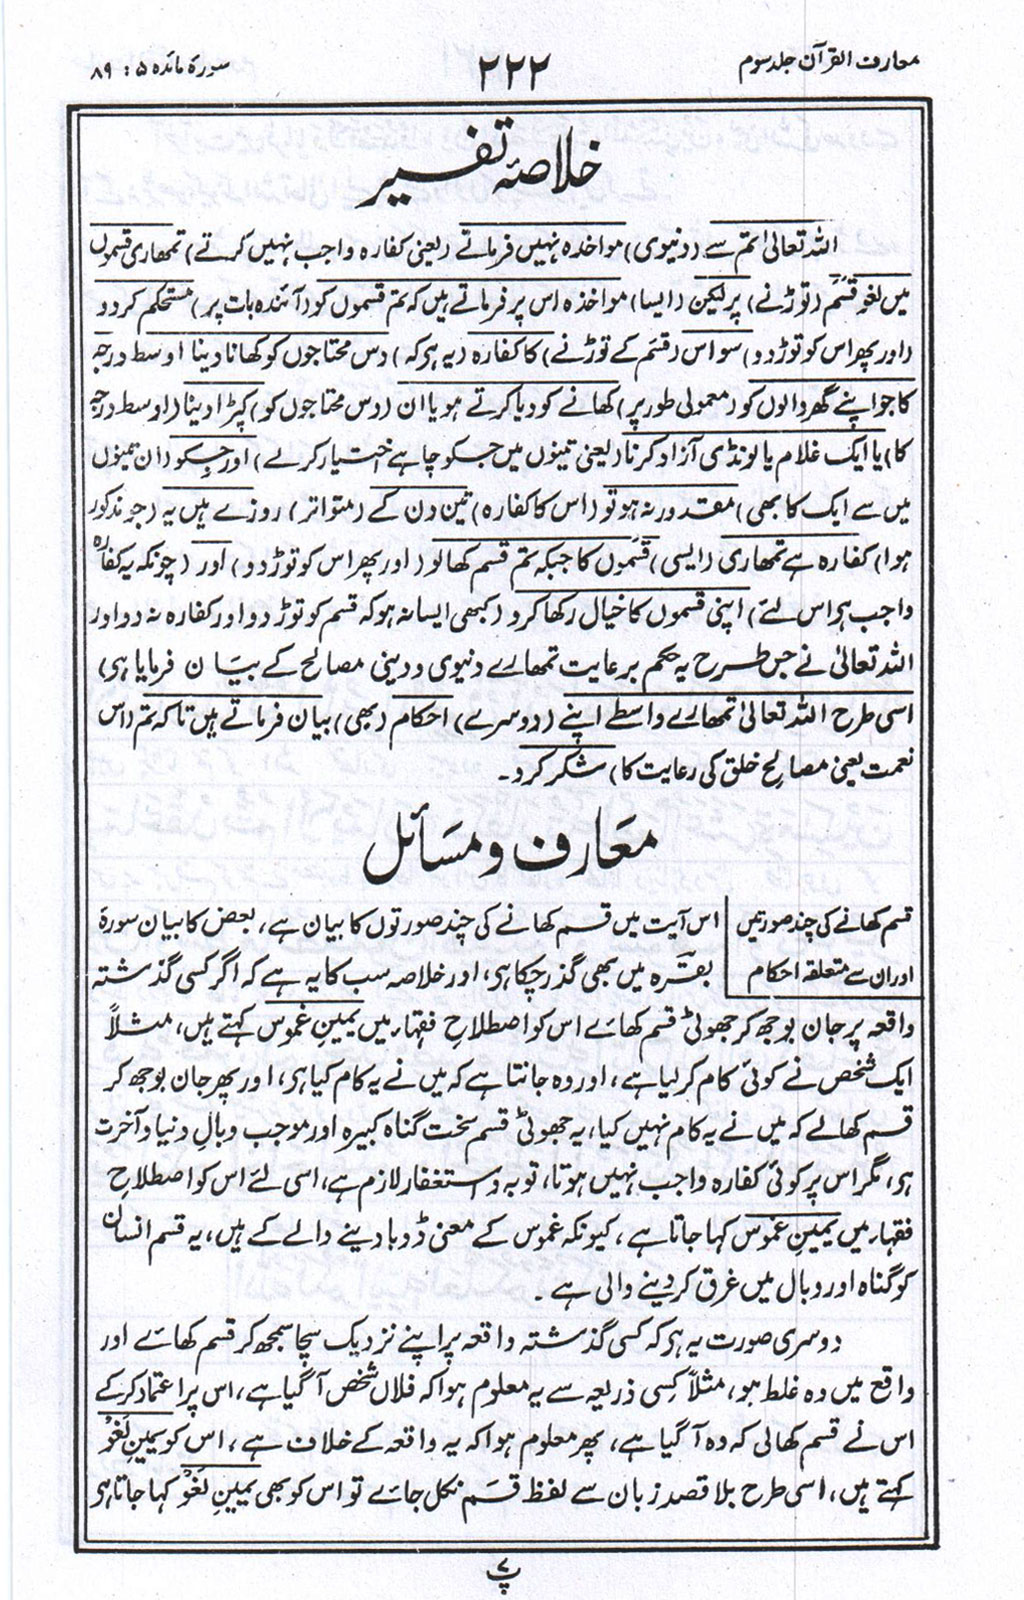 معارف القرآن جلد سوم
۲۲۲
سورۂ مائدہ ۵ : ۸۹
خلاصۂ تفسیر
اللہ تعالیٰ تم سے (دنیوی) مواخذہ نہیں فرماتے (یعنی کفارہ واجب نہیں کرتے) تمھاری قسموں
میں لغو قسم (توڑنے) پر لیکن (ایسا) مواخذہ اس پر فرماتے ہیں کہ تم قسموں کو (آئندہ بات پر) مستحکم کردو
(اور پھر اس کو توڑ دو) سو اس (قسم کے توڑنے) کا کفارہ (یہ ہی کہ) دس محتاجوں کو کھانا دینا اوسط درجہ
کا جو اپنے گھر والوں کو (معمولی طور پر) کھانے کو دیا کرتے ہو یا ان (دس محتاجوں کو) کپڑا دینا (اوسط درجہ
کا) یا ایک غلام یا لونڈی آزاد کرنا (یعنی تینوں میں جسکو چاہے اختیار کرلے) اور جسکو (ان تینوں
میں سے ایک کا بھی) مقدور نہ ہو تو (اس کا کفارہ) تین دن کے (متواتر) روزے ہیں یہ (جو مذکور
ہوا) کفارہ ہے تمھاری (ایسی) قسموں کا جبکہ تم قسم کھالو (اور پھر اس کو توڑ دو) اور (چونکہ یہ کفارہ
واجب ہی اس لئے) اپنی قسموں کا خیال رکھا کرو (کبھی ایسا نہ ہو کہ قسم کو توڑ دو اور کفارہ نہ دو اور
اللہ تعالیٰ نے جس طرح یہ حکم برعایت تمھارے دنیوی و دینی مصالح کے بیان فرمایا ہی)
اسی طرح اللہ تعالیٰ تمھارے واسطے اپنے (دوسرے) احکام (بھی) بیان فرماتے ہیں تاکہ تم (اس
نعمت یعنی مصالح خلق کی رعایت کا) شکر کرو۔
معارف و مسائل
قسم کھانے کی چند صورتیں
اور ان سے متعلقہ احکام
اس آیت میں قسم کھانے کی چند صورتوں کا بیان ہے، بعض کا بیان سورۂ
بقرہ میں بھی گذر چکا ہی، اور خلاصہ سب کا یہ ہے کہ اگر کسی گذشتہ
واقعہ پر جان بوجھ کر جھوٹی قسم کھائے اس کو اصطلاحِ فقہاء میں یمینِ غموس کہتے ہیں، مثلاً
ایک شخص نے کوئی کام کرلیا ہے، اور وہ جانتا ہے کہ میں نے یہ کام کیا ہی، اور پھر جان بوجھ کر
قسم کھالے کہ میں نے یہ کام نہیں کیا، یہ جھوٹی قسم سخت گناہ کبیرہ اور موجب وبالِ دنیا و آخرت
ہی، مگر اس پر کوئی کفارہ واجب نہیں ہوتا، توبہ و استغفار لازم ہے، اسی لئے اس کو اصطلاحِ
فقہاء میں یمینِ غموس کہا جاتا ہے، کیونکہ غموس کے معنی ڈوبا دینے والے کے ہیں، یہ قسم انسان
کو گناہ اور وبال میں غرق کردینے والی ہے۔
دوسری صورت یہ ہی کہ کسی گذشتہ واقعہ پر اپنے نزدیک سچا سمجھ کر قسم کھائے اور
واقع میں وہ غلط ہو، مثلاً کسی ذریعہ سے یہ معلوم ہوا کہ فلاں شخص آگیا ہے، اس پر اعتماد کرکے
اس نے قسم کھالی کہ وہ آگیا ہے، پھر معلوم ہوا کہ یہ واقعہ کے خلاف ہے، اس کو یمینِ لغو
کہتے ہیں، اسی طرح بلا قصد زبان سے لفظ قسم نکل جائے تو اس کو بھی یمینِ لغو کہا جاتا ہی
پ ۷